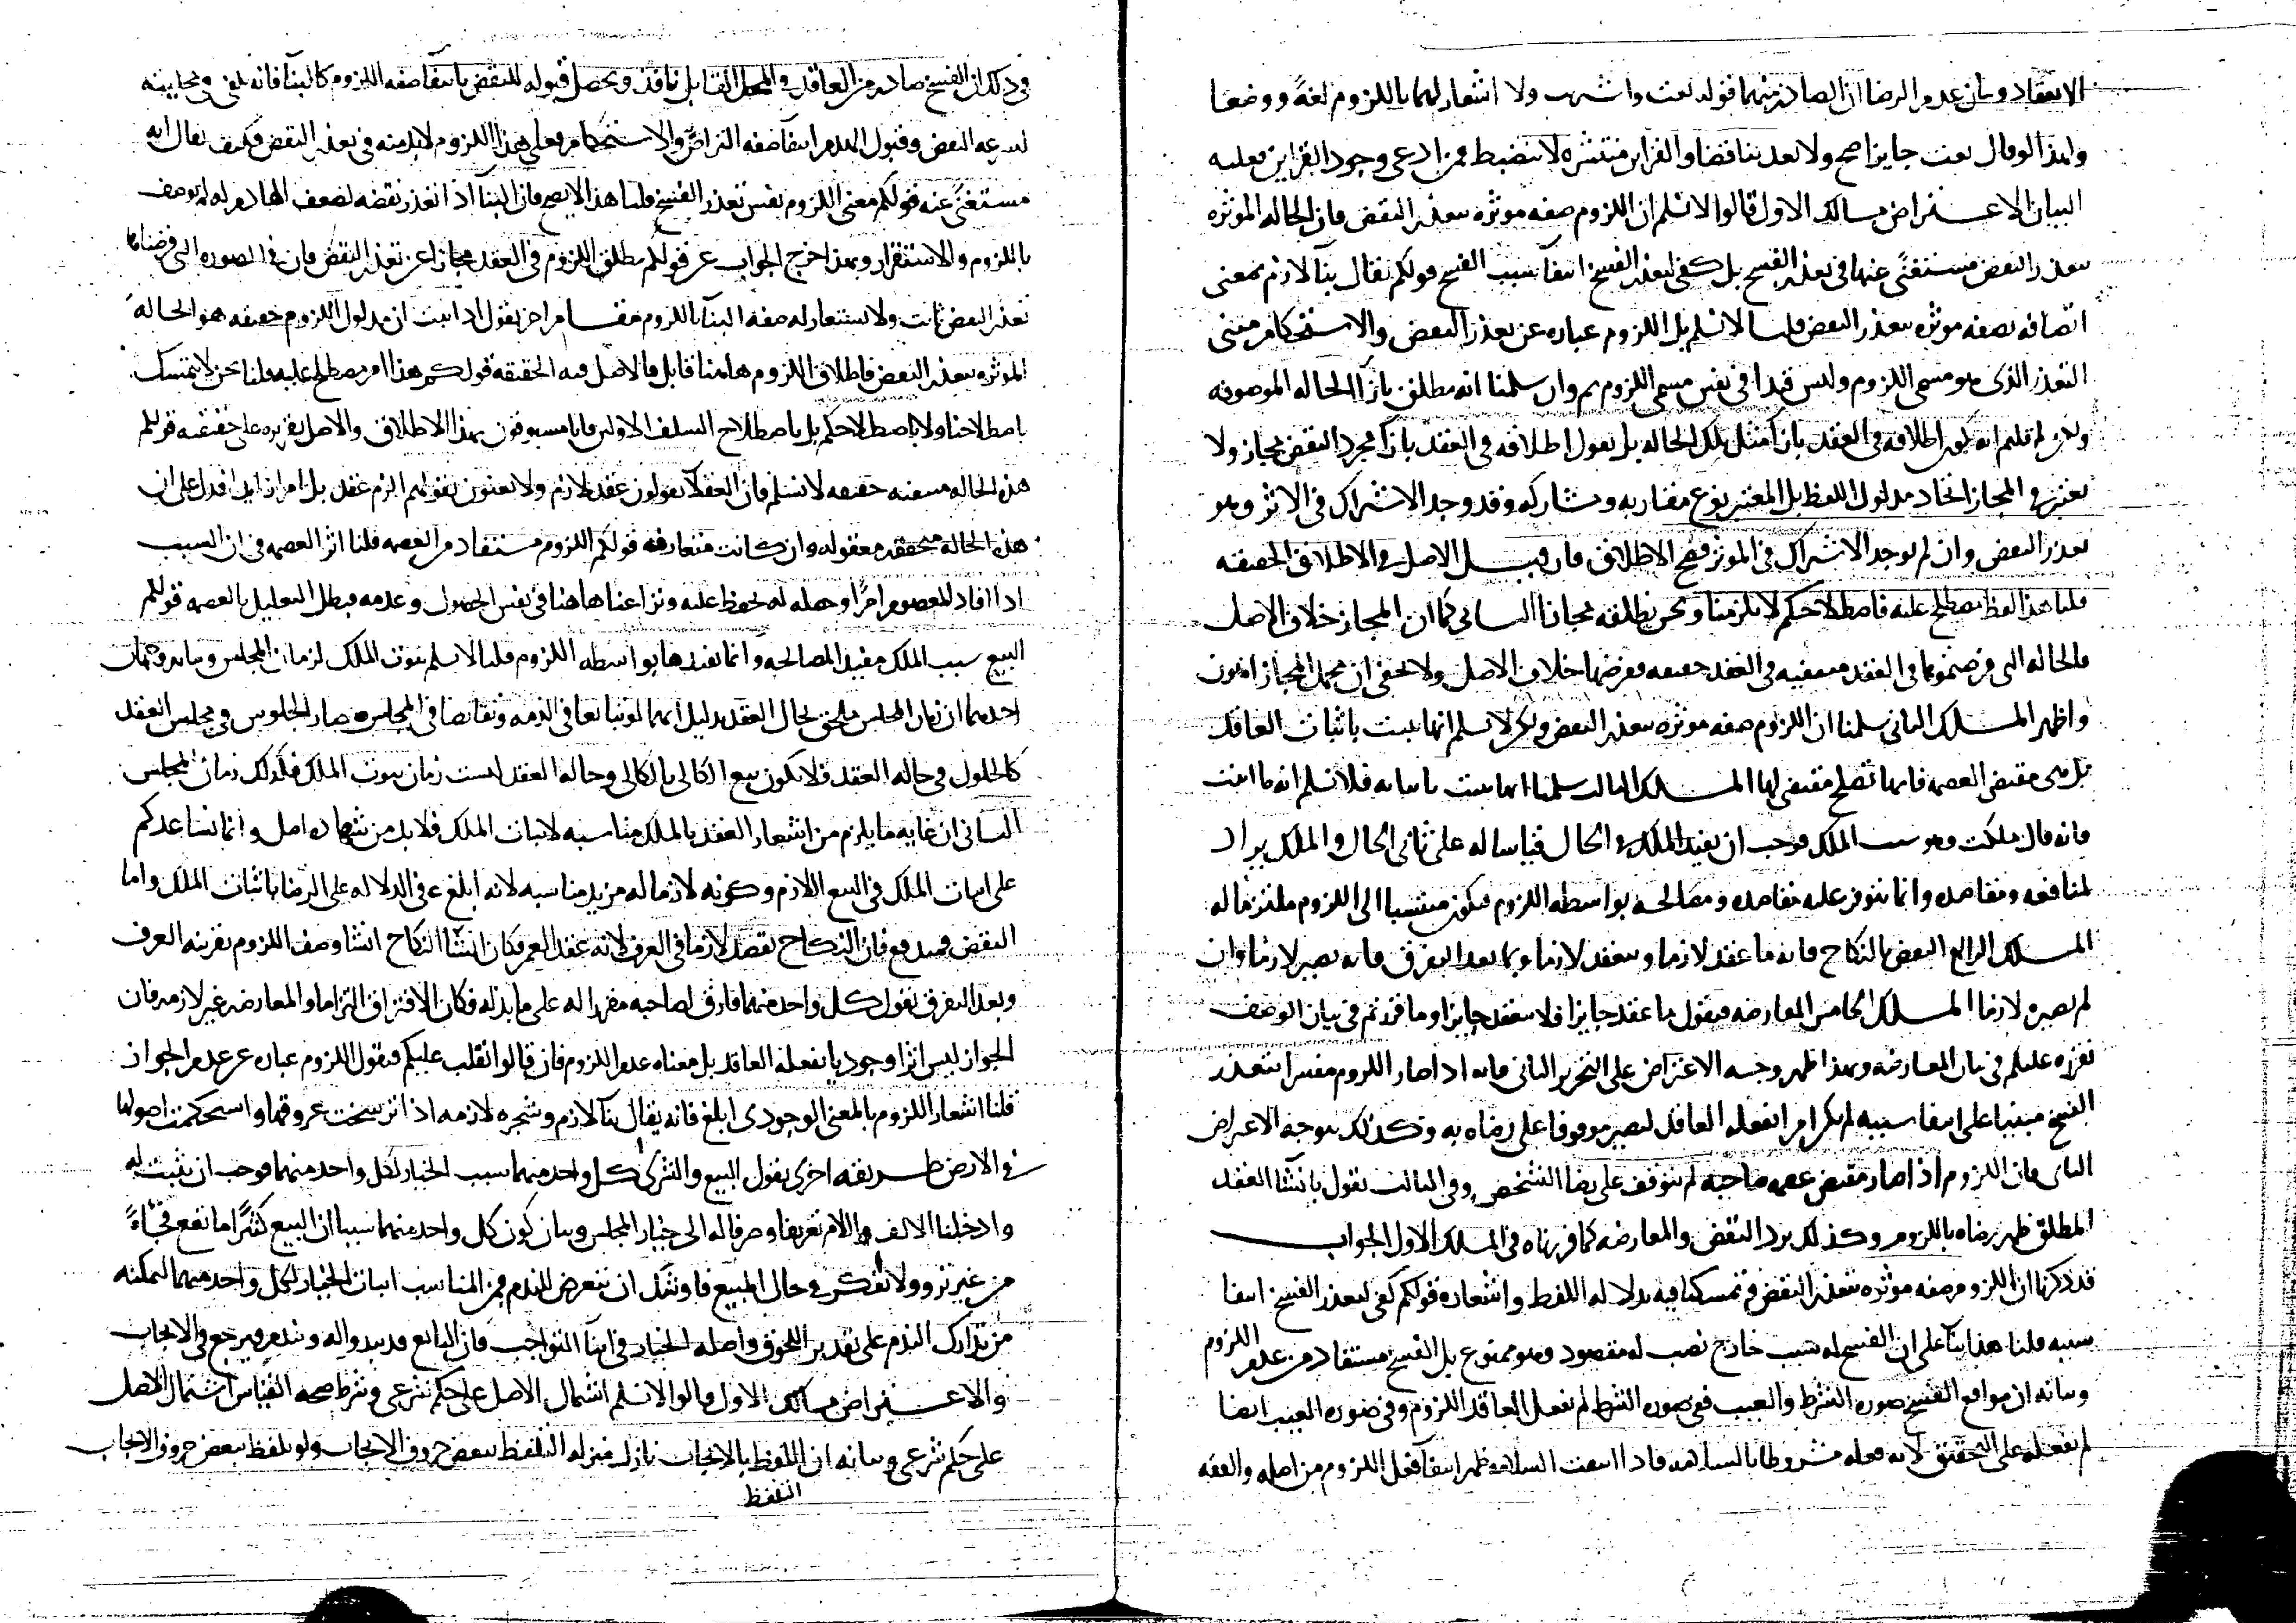 الانعقاد وبيان عدم الرضا ان الصادر منهما قوله بعت واشتريت ولا اشعار لهما باللزوم لغةً ووضعا
ولهذا لو قال بعت جايزا صح ولا يعد تناقضا والقراين منتشره لا تنضبط فمن ادعى وجود القراين فعليه
البيان الاعتراض مسالك الاول قالوا لا نسلم ان اللزوم صفه موثره بتعذر النقض فان الحاله الموثره
بتعذر النقض مستغنًى عنها فى تعذر الفسخ بل يكفى لتعذر الفسخ انتفآ سبب الفسخ قولكم يقال بنآ لازم بمعنى
اتصافه بصفه موثره بتعذر النقض قلنا لا نسلم بل اللزوم عباره عن تعذر النقض والاستحكام مبنى
التعذر الذى هو مسمى اللزوم وليس قيدا فى نفس مسمى اللزوم ثم وان سلمنا انه مطلق بازآ الحاله الموصوفه
ولكن لم قلتم انه يكون اطلاقه فى العقد بازآ مثل تلك الحاله بل نقول اطلاقه فى العقد بازآ مجرد النقض مجاز ولا
يعتبر فى المجاز اتحاد مدلول اللفظ بل المعتبر نوع مقاربه ومشاركه وقد وجد الاشتراك فى الاثر وهو
تعذر النقض وان لم يوجد الاشتراك فى الموثر فصح الاطلاق فان قيل الاصل فى الاطلاق الحقيقه
قلنا هذا لفظ مصطلح عليه فاصطلاحكم لا يلزمنا ونحن نطلقه مجازا الثانى كما ان المجاز خلاف الاصل
فالحاله التى فرضتموها فى العقد منتفيه فى العقد حقيقه ففرضها خلاف الاصل ولا يخفى ان محمل المجاز اهون
واظهر المسلك الثانى سلمنا ان اللزوم صفه موثره بتعذر النقض ولكن لا نسلم انها تثبت باثبات العاقد
بل هى مقتضى العصمه فانها تصلح مقتضى لها المسلك الثالث سلمنا انها تثبت باثباته فلا نسلم انه ما اثبت
فانه قال ملكت وهو سبب الملك فوجب ان يفيد الملك فى الحال قياسا له على ثانى الحال والملك يراد
لمنافعه ومقاصده وانما تتوفر عليه مقاصده ومصالحه بواسطه اللزوم فيكون منتسبا الى اللزوم ملتزما له
المسلك الرابع النقض بالنكاح فانه ما عقد لازما وينعقد لازما وبما بعد التفرق فانه يصير لازما وان
لم يصيره لازما المسلك الخامس المعارضه فنقول ما عقد جايزا فلا ينعقد جايزا وما قررتم فى بيان الوصف
نقرره عليكم فى بيان المعارضه وبهذا ظهر وجه الاعتراض على التحرير الثانى فانه اذا صار اللزوم مفسرا بتعذر
الفسخ مبنيا على انتفا سببه لم يكن امرا يفعله العاقد ليصير موقوفا على رضاه به وكذلك يتوجه الاعتراض
الثانى فان اللزوم اذا صار مقتضى عصمه صاحبه لم يتوقف على رضا الشخص وفى الثالث نقول بانشآ العقد
المطلق ظهر رضاه باللزوم وكذلك يرد النقض والمعارضه كما قررناه فى المسلك الاول الجواب
قد ذكرنا ان اللزوم صفه موثره بتعذر النقض وتمسكنا فيه بدلاله اللفظ واشعاره قولكم كفى لتعذر الفسخ انتفا
سببه قلنا هذا بنآ على ان الفسخ له سبب خارج نصب له مقصود وهو ممنوع بل الفسخ مستفاد من عدم اللزوم
وبيانه ان مواقع الفسخ صوره الشرط والعيب ففى صوره الشرط لم يفعل العاقد اللزوم وفى صوره العيب ايضا
لم يفعله على التحقيق لانه فعله مشروطا بالسلامه فاذا انتفت السلامه ظهر انتفآ فعل اللزوم من اصله والفقه
فى ذلك ان الفسخ صادر من العاقد فى المحل القابل نافذ ويحصل قبوله للنقض بانتفآ صفه اللزوم كالبنآ فانه يلغى فى مجانبته
لسرعه النقض وقبول الهدم انتفآ صفه التراص والاستحكام وعلى هذا اللزوم لا بد منه فى تعذر النقض فكيف يقال انه
مستغنًى عنه قولكم معنى اللزوم نفس تعذر الفسخ قلنا هذا لا يصح فان البنآ اذا تعذر نقضه لضعف الهادم له لم يوصف
باللزوم والاستقرار وبهذا خرج الجواب عن قولكم يطلق اللزوم فى العقد مجازا عن تعذر النقض فان فى الصوره التى فرضناها
تعذر النقض ثابت ولا يستعار له صفه البنآ باللزوم مقام اخر نقول اذا ثبت ان مدلول اللزوم حقيقه هو الحالةُ
الموثره بتعذر النقض فاطلاق اللزوم هاهنا قابل فالاصل فيه الحقيقه قولكم هذا امر مصطلح عليه قلنا نحن لا نتمسك
باصطلاحنا ولا باصطلاحكم بل باصطلاح السلف الاولين فانا مسبوقون بهذا الاطلاق والاصل تقريره على حقيقته قولكم
هذه الحاله منتفيه حقيقه لا نسلم فان العقلآ يقولون عقد لازم ولا يعنون بقولهم الزم عقد بل امرا زايدا فدل على ان
هذه الحاله متحققه معقوله وان كانت متعارفه قولكم اللزوم مستفاد من العصمه قلنا اثر العصمه فى ان السبب
اذا افاد للمعصوم امرًا وحصله له يحفظ عليه ونزاعنا هاهنا فى نفس الحصول وعدمه فبطل التعليل بالعصمه قولكم
البيع سبب الملك مفيد لمصالحه وانما يفيدها بواسطه اللزوم قلنا لا نسلم ثبوت الملك لزمان المجلس وبيانه وجهان
احدهما ان زمان المجلس ملحق بحال العقد بدليل انهما لو تبايعا فى الذمه وتقابضا فى المجلس صار الجلوس فى مجلس العقد
كالحلول فى حاله العقد فلا يكون بيع الكالى بالكالى وحاله العقد ليست زمان ثبوت الملك فكذلك زمان المجلس
الثانى ان غايه ما يلزم من اشعار العقد بالملك مناسبه لاثبات الملك فلا بد من شهاده اصل وانما نساعدكم
على اثبات الملك فى البيع اللازم وكونه لازما له مزيد مناسبه لانه ابلغ فى الدلاله على الرضا باثبات الملك واما
النقض فمندفع فان النكاح يقصد لازما فى العرف لانه عقد العمر فكان انشآ النكاح انشا وصف اللزوم بقرينه العرف
وبعد التفرق نقول كل واحد منهما فارق لصاحبه مقررا له على ما بذله فكان الافتراق التزاما والمعارضه غير لازمه فان
الجواز ليس اثرا وجوديا يفعله العاقد بل معناه عدم اللزوم فان قالوا نقلب عليكم فنقول اللزوم عباره عن عدم الجواز
قلنا اشعار اللزوم بالمعنى الوجودى ابلغ فانه يقال بنآ لازم وشجره لازمه اذا ترسخت عروقها واستحكمت اصولها
فى الارض طريقه اخرى نقول البيع والشرى كل واحد منهما سبب الخيار لكل واحد منهما فوجب ان يثبت له
وادخلنا الالف واللام تعريفا وصرفا له الى خيار المجلس وبيان كون كل واحد منهما سببا ان البيع كثيرًا ما يقع فجاءةً
من غير ترو ولا تفكر فى حال المبيع فاوشك ان يتعرض للندم فمن المناسب اثبات الخيار لكل واحد منهما لتمكنه
من تدارك الندم على تقدير اللحوق واصله الخيار فى اثنآ التواجب فان البائع قد يبدو له ويندم فيرجع فى الايجاب
والاعتراض مسالك الاول قالوا لا نسلم اشتمال الاصل على حكم شرعى وشرط صحه القياس اشتمال الاصل
على حكم شرعى وبيانه ان التلفظ بالايجاب نازل منزله التلفظ ببعض حروف الايجاب ولو تلفظ ببعض حروف الايجاب
التلفظ